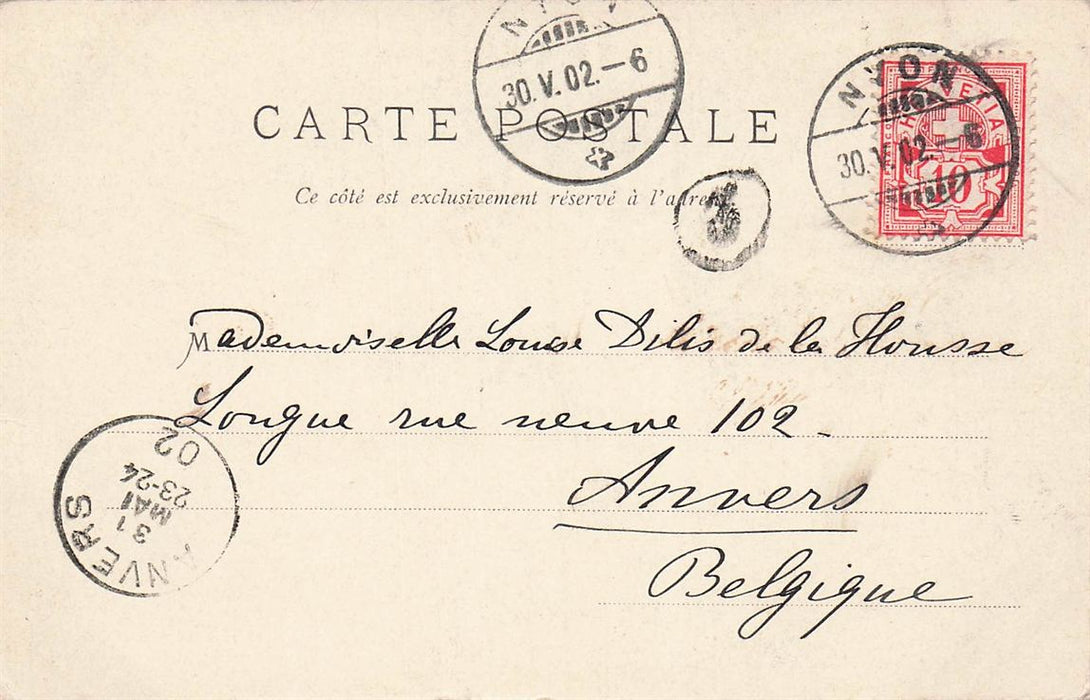 NYON
30.V.02.–6
NYON
30.V.02.–6
HELVETIA
10
CARTE POSTALE
Ce côté est exclusivement réservé à l'adresse
Mademoiselle Louise Dilis de la Housse
Longue rue neuve 102 -
Anvers
Belgique
ANVERS
31
MAI
23-24
02